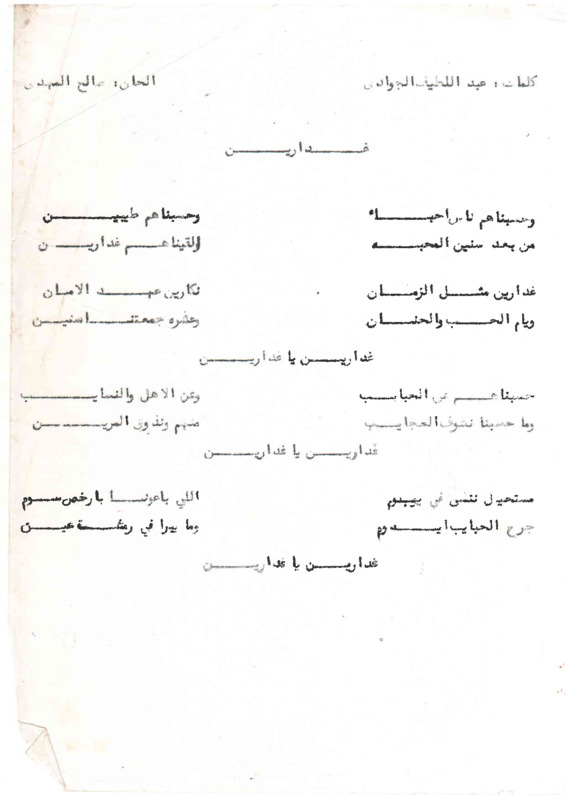 كلمات : عبد اللطيف الجوادي الحان : صالح المهدي
غدارين
وحسبناهم ناس احباء وحسبناهم طيبين
من بعد سنين المحبه التيناهم غدارين
غدارين مثل الزمان نكارين عهد الامان
ويام الحب والحنان وعشره جمعتنا اسنين
غدارين يا غدارين
حسبناهم من الحبايب وعن الاهل والنسايب
وما حسبنا نشوف العجايب منهم ونذوق المرين
غدارين يا غدارين
مستحيل ننسى في يوم اللي باعونا بارخص سوم
جرح الحبايب ايدوم وما يبرا في رمشة عين
غدارين يا غدارين